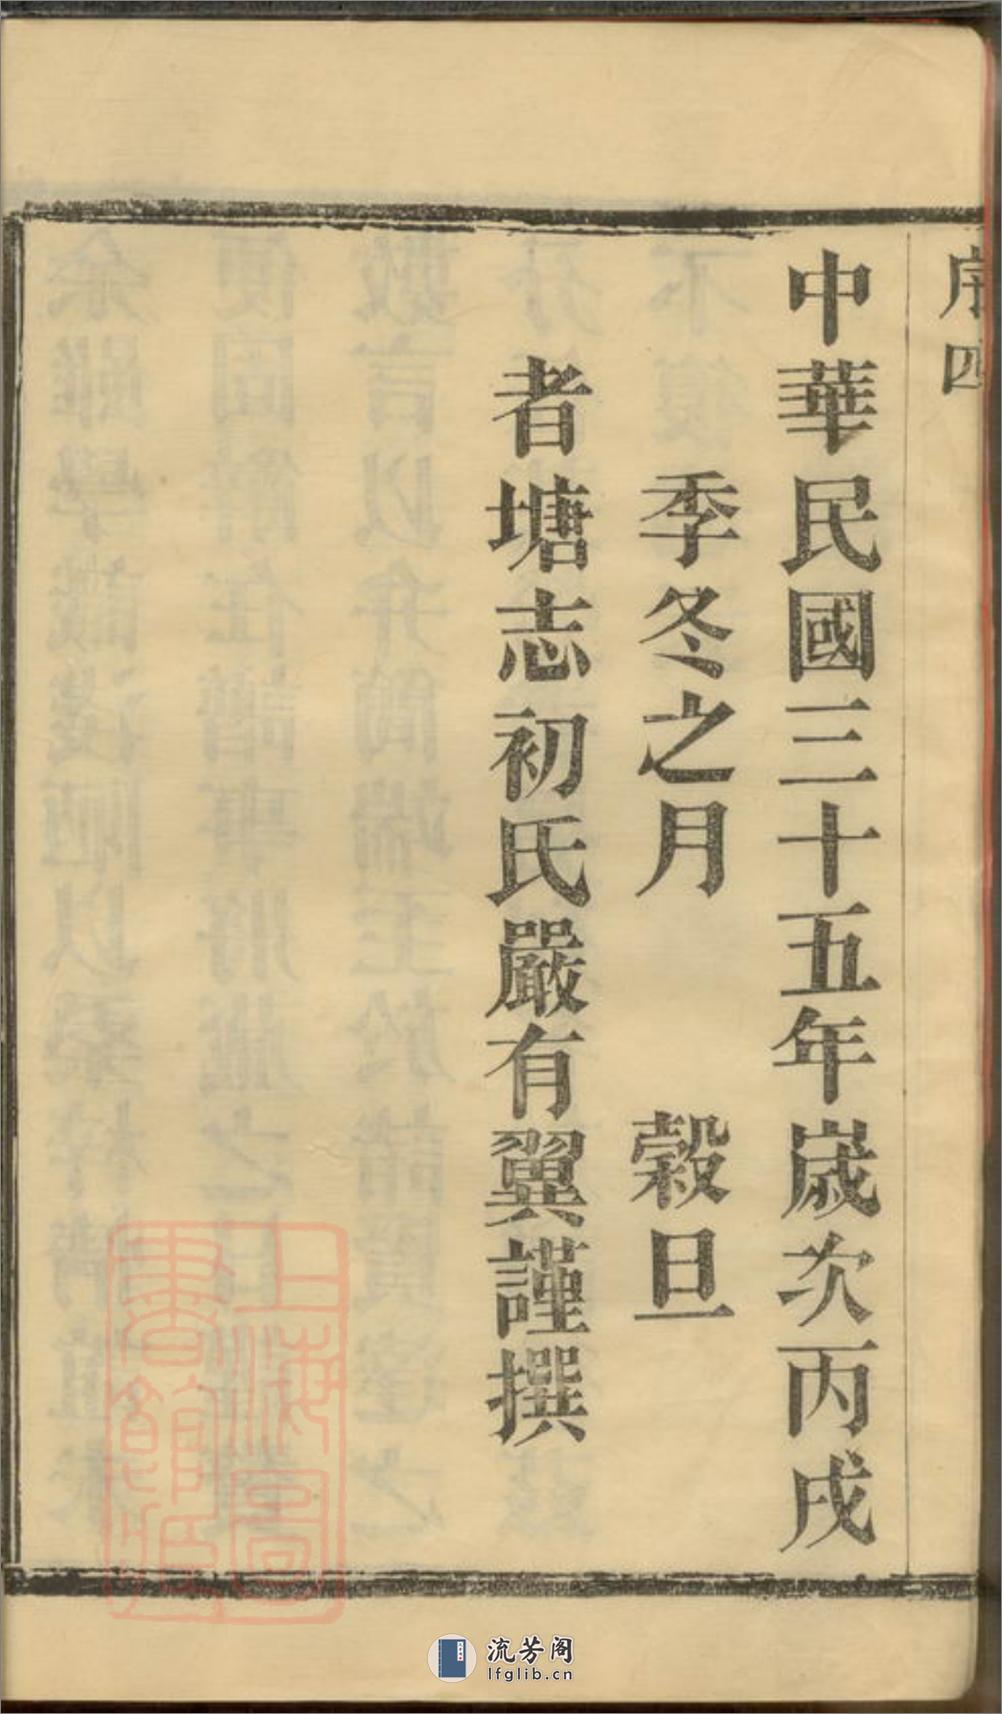 序四
中華民國三十五年歲次丙戌
季冬之月 穀旦
者塘志初氏嚴有翼謹撰
上海圖書館藏
流芳阁
lfglib.cn